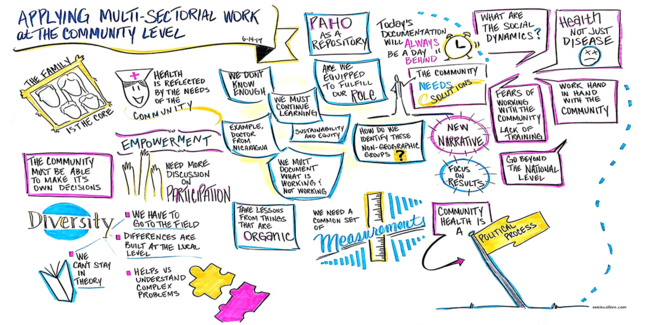 APPLYING MULTI-SECTORIAL WORK
at THE COMMUNITY LEVEL
PAHO
AS A
REPOSITORY
Today's
DOCUMENTATION
WILL ALWAYS
BE A DAY
BEHIND
WHAT ARE
THE SOCIAL
DYNAMICS?
Health
NOT JUST
DISEASE
THE FAMILY
IS THE CORE
HEALTH
IS REFLECTED
BY THE NEEDS
OF THE
COMMUNITY
WE DON'T
KNOW
ENOUGH
WE MUST
CONTINUE
LEARNING
ARE WE
EQUIPPED
TO FULFILL
OUR ROLE
THE COMMUNITY
NEEDS
SOLUTIONS
FEARS OF
WORKING
WITH THE
COMMUNITY
LACK OF
TRAINING
WORK HAND
IN HAND
WITH THE
COMMUNITY
EMPOWERMENT
EXAMPLE,
DOCTOR
FROM
NICARAGUA
SUSTAINABILITY
AND EQUITY
HOW DO WE
IDENTIFY THESE
NON-GEOGRAPHIC
GROUPS?
NEW
NARRATIVE
THE COMMUNITY
MUST BE ABLE
TO MAKE ITS
OWN DECISIONS
NEED MORE
DISCUSSION
ON
PARTICIPATION
WE MUST
DOCUMENT
WHAT IS
WORKING &
NOT WORKING
FOCUS ON
RESULTS
GO BEYOND
THE NATIONAL
LEVEL
Diversity
WE HAVE TO
GO TO THE FIELD
DIFFERENCES ARE
BUILT AT THE LOCAL
LEVEL
WE
CAN'T STAY
IN
THEORY
HELPS US
UNDERSTAND
COMPLEX
PROBLEMS
TAKE LESSONS
FROM THINGS
THAT ARE
ORGANIC
WE NEED A
COMMON SET
OF
Measurements
COMMUNITY
HEALTH IS
A
POLITICAL
PROCESS